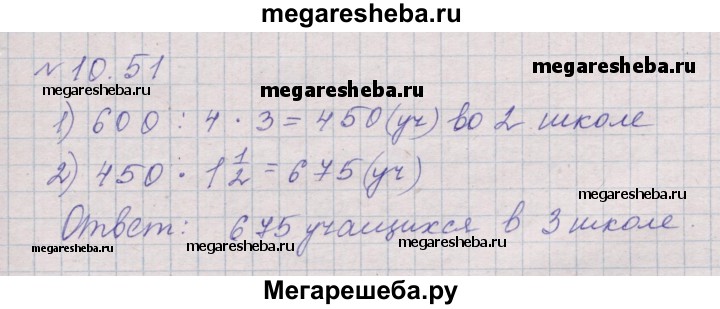 megaresheba.ru
№ 10.51
megaresheba.ru
megaresheba.ru
megaresheba.ru
1) 600 : 4 · 3 = 450 (уч) во 2 школе
megaresheba.ru
megaresheba.ru
2) 450 · 1 1/2 = 675 (уч)
megaresheba.ru
Ответ: 675 учащихся в 3 школе.
megaresheba.ru
megaresheba.ru
megaresheba.ru
megaresheba.ru
Мегарешеба.ру